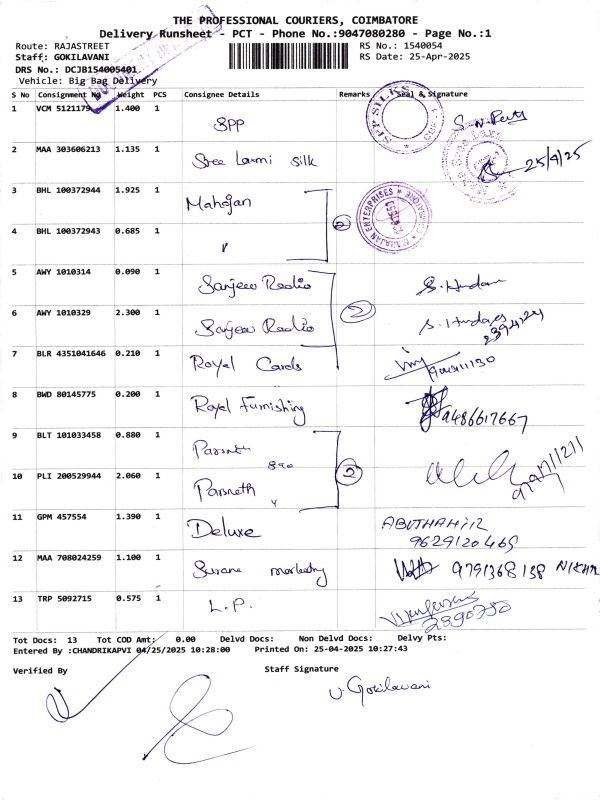 THE PROFESSIONAL COURIERS, COIMBATORE
Delivery Runsheet - PCT - Phone No.:9047080280 - Page No.:1
Route: RAJASTREET
RS No.: 1540054
Staff: GOKILAVANI
RS Date: 25-Apr-2025
DRS No.: DCJB154005401
Vehicle: Big Bag Delivery
S No Consignment No Weight PCS Consignee Details Remarks Seal & Signature
1 VCM 5121179 1.400 1 SPP
SPP SILKS
2 MAA 303606213 1.135 1 Sree Laxmi Silk 25/4/25
3 BHL 100372944 1.925 1 Mahajan
MAHAJAN ENTERPRISES
4 BHL 100372943 0.685 1 "
2
5 AWY 1010314 0.090 1 Sanjeev Radio
2
6 AWY 1010329 2.300 1 Sanjeev Radio
7 BLR 4351041646 0.210 1 Royal Cards
8 BWD 80145775 0.200 1 Royal Furnishing 9486617667
9 BLT 101033458 0.880 1
2
10 PLI 200529944 2.060 1 Parsneth
11 GPM 457554 1.390 1 Deluxe ABUTHAHIR
9629120469
12 MAA 708024259 1.100 1 9791368138
13 TRP 5092715 0.575 1 L.P.
2390750
Tot Docs: 13 Tot COD Amt: 0.00 Delvd Docs: Non Delvd Docs: Delvy Pts:
Entered By :CHANDRIKAPVI 04/25/2025 10:28:00 Printed On: 25-04-2025 10:27:43
Verified By Staff Signature
V. Gokilavani